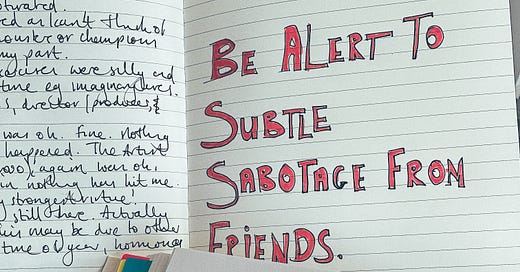 tivated.
ed as I can't think of
monster or champion
my part.
exercises were silly and
time eg imaginary lives.
s, director/producer, &
was oh. fine. nothing
happened. The Artist
again was oh,
in nothing has hit me.
strongest virtue!
still there. Actually
this may be due to other
time of year, hormones
BE ALERT TO
SUBTLE
SABOTAGE FROM
FRIENDS.